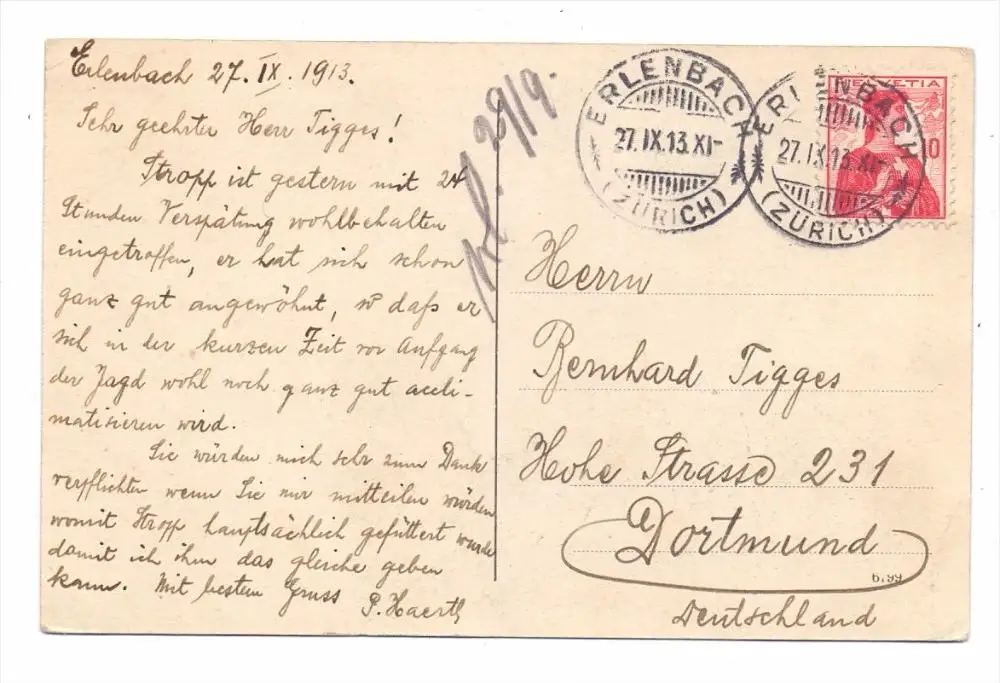 Erlenbach 27. IX. 1913.
Sehr geehrter Herr Tigges!
Stropp ist gestern mit 24
Stunden Verspätung wohlbehalten
eingetroffen, er hat sich schon
ganz gut angewöhnt, so daß er
sich in der kurzen Zeit vor Aufgang
der Jagd wohl noch ganz gut accli-
matisieren wird.
Sie würden mich sehr zum Dank
verpflichten wenn Sie mir mitteilen würden
womit Stropp hauptsächlich gefüttert wurde
damit ich ihm das gleiche geben
kann. Mit bestem Gruss
P. Haerth
29/9.
ERLENBACH
27.IX.13.XI-
(ZÜRICH)
ERLENBACH
27.IX.13.XI-
(ZÜRICH)
HELVETIA
10
Herrn
Bernhard Tigges
Hohe Strasse 231
Dortmund
6199
Deutschland